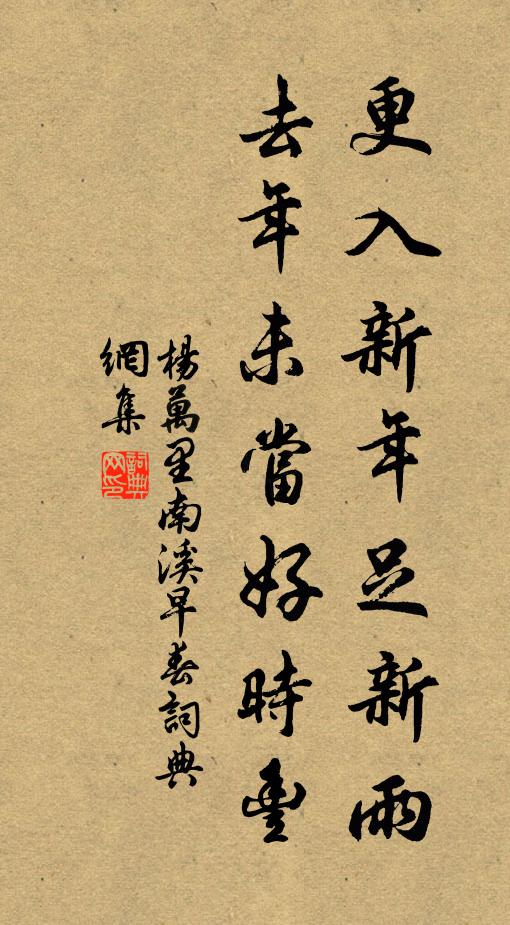 更入新年足新雨
去年未當好時豐
楊萬里南溪早春詞典
網集
詞典网印